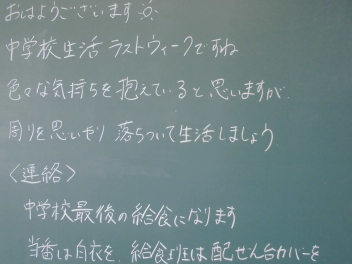 おはようございます
中学校生活 ラストウィークですね
色々な気持ちを抱えていると思いますが
周りを思いやり 落ちついて生活しましょう
<連絡>
中学校最後の給食になります
当番は白衣を、給食班は配ぜん台カバーを